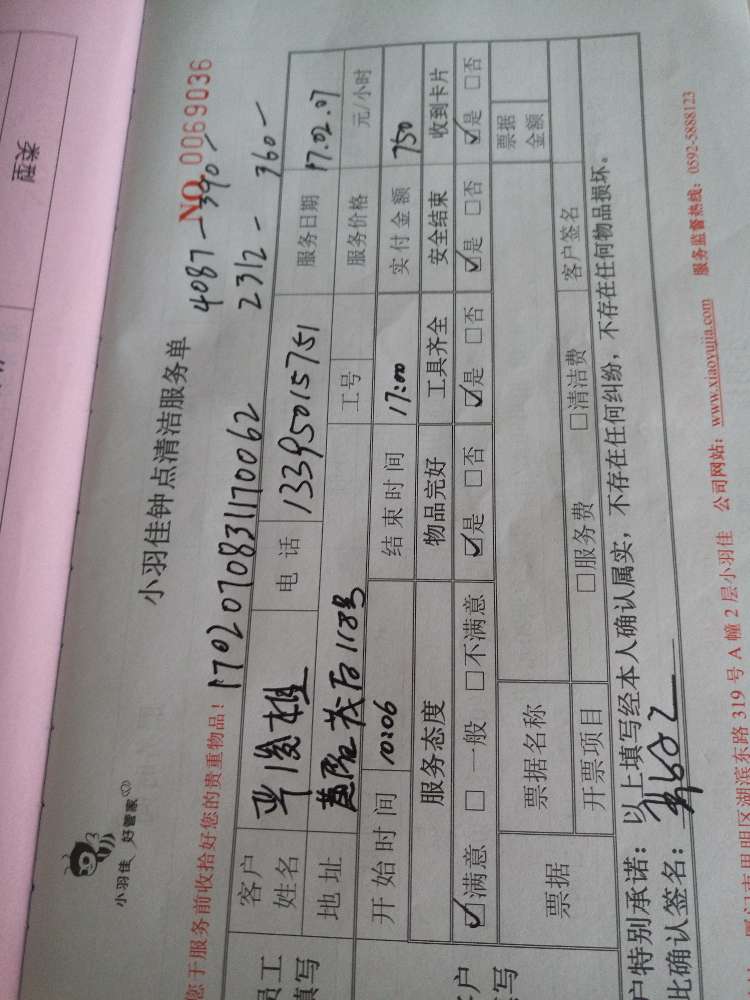 类型
小羽佳 好管家
小羽佳钟点清洁服务单
NO.0069036
您于服务前收拾好您的贵重物品！
17020708311170062
4087-390-
2312-360-
员工
填写
客户
姓名
电话 13395015751
服务日期 17.02.07
地址
118号
工号
服务价格 元/小时
开始时间 10:06
结束时间 17:00
实付金额 750
服务态度 物品完好 工具齐全 安全结束 收到卡片
☑满意 □一般 □不满意 ☑是 □否 ☑是 □否 ☑是 □否 ☑是 □否
票据
票据名称
票据
金额
开票项目 □服务费 □清洁费 客户签名
户特别承诺：以上填写经本人确认属实，不存在任何纠纷，不存在任何物品损坏。
此确认签名：
明区湖滨东路 319 号 A 幢 2 层小羽佳 公司网站：www.xiaoyujia.com 服务监督热线：0592-5888123